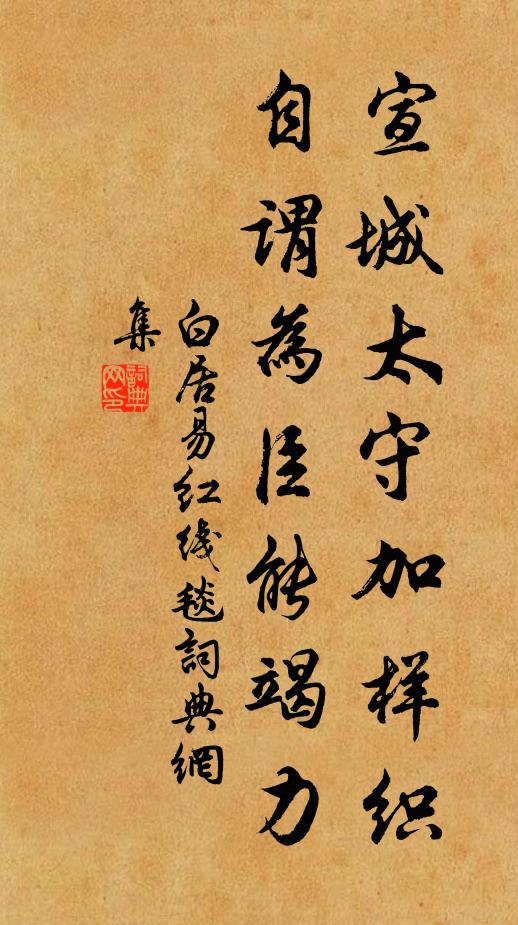 宣城太守加样织
自谓為臣能竭力
白居易红线毯詞典網
集
詞典
网印